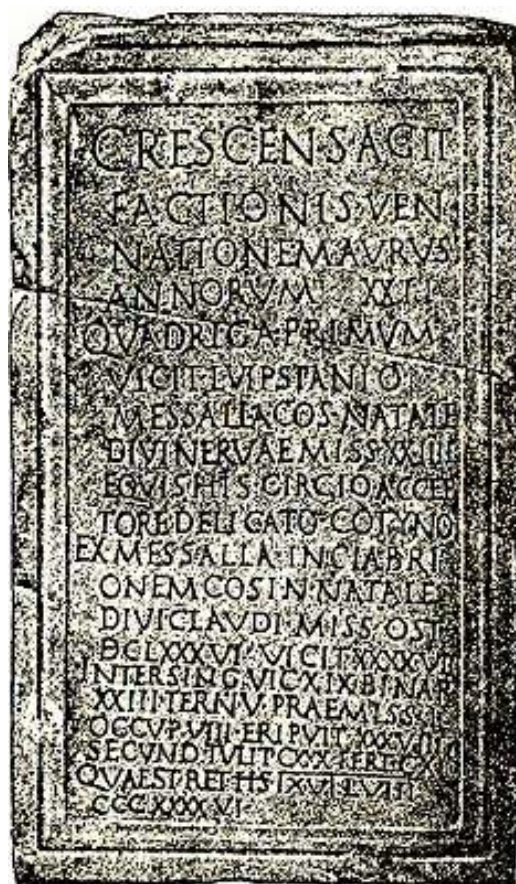 CRESCENS AGIT
FACTIONIS VEN
NATIONE MAVRVS
ANNORVM XXII
QVADRIGA PRIMVM
VICIT L VIPSTANIO
MESSALLA COS NATALE
DIVI NERVAE MISS XXIIII
EQVIS HIS CIRCIO ACCEP
TORE DELICATO COTYNO
EX MESSALLA IN GLABRI
ONEM COS IN NATALE
DIVI CLAVDI MISS OST
DCLXXXVI VICIT XXXXVII
INTER SING VIC XIX BINAR
XXIII TERN V PRAEMISS I
OCCVP VIII ERIPVIT XXXVIII
SECVND TVLIT CXXX TERT CXI
QVAEST RET HS
CCCXXXXVI